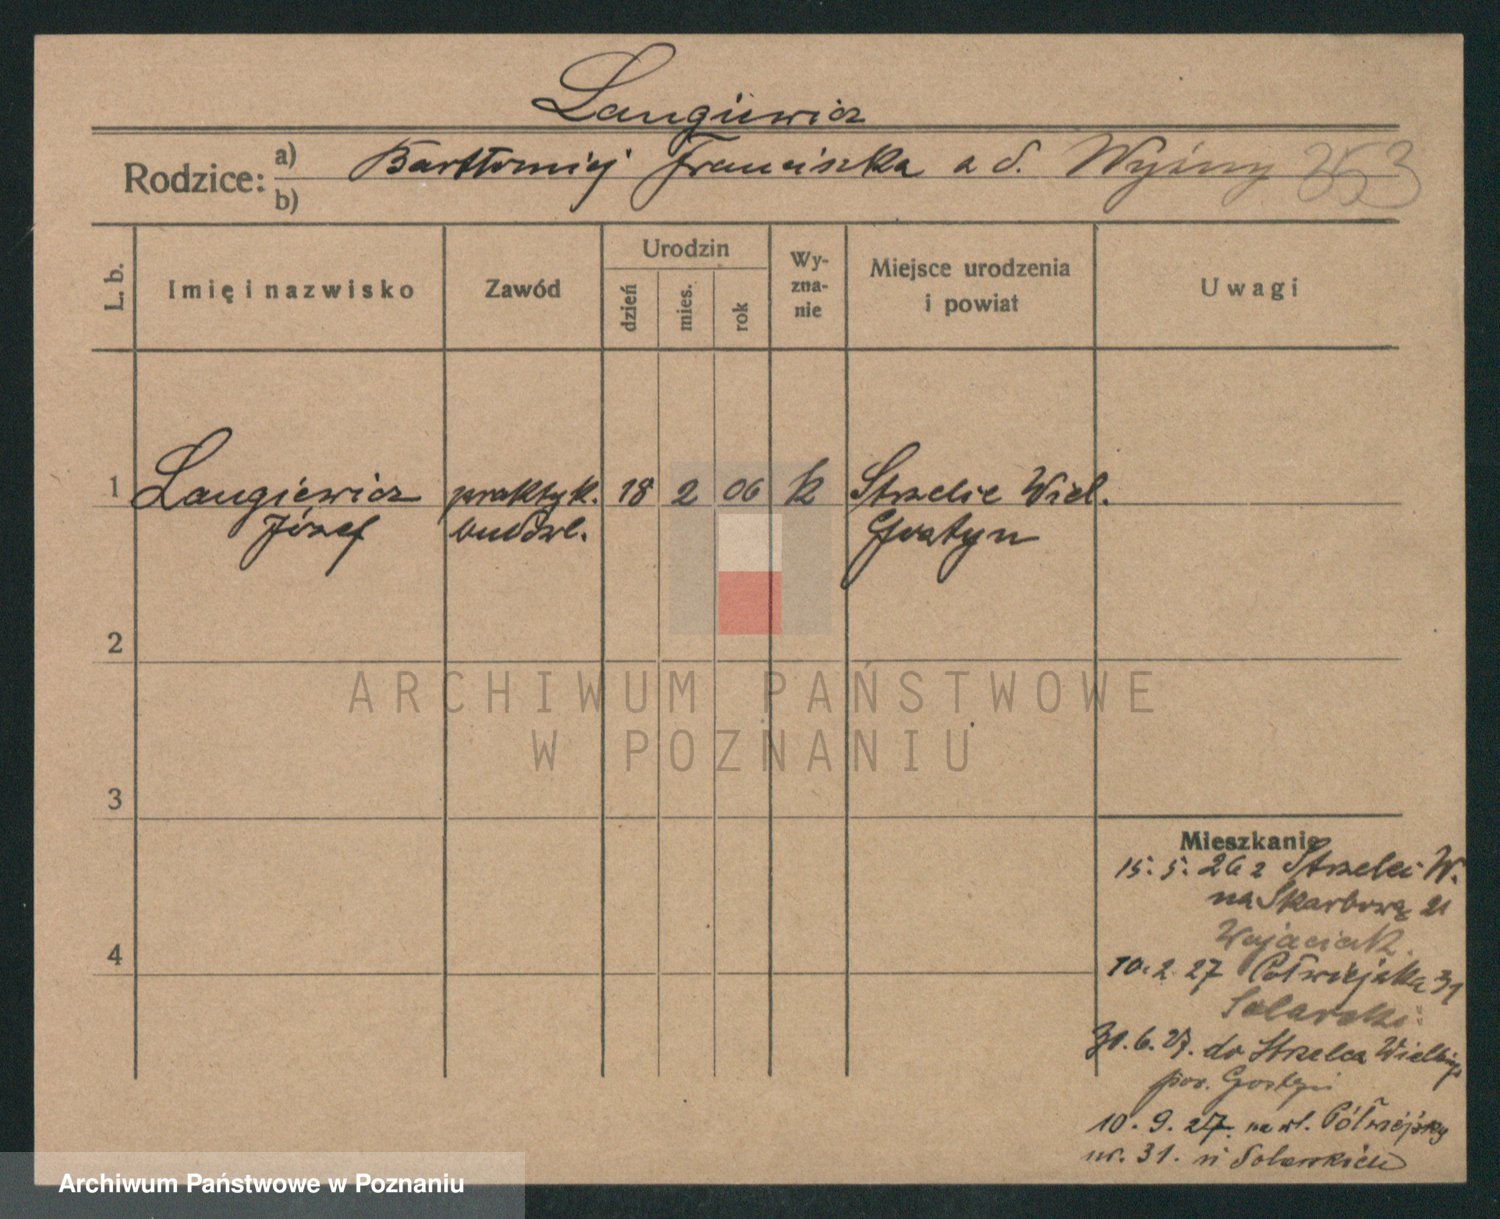 Langiewicz
Rodzice: a) Bartłomiej Franciszka a d. 353
b)
L. b. Imię i nazwisko Zawód Urodzin dzień mies. rok Wy-zna-nie Miejsce urodzenia i powiat Uwagi
1 Langiewicz praktyk. 18 2 06 k Strzelce Wiel.
Józef budowl. Gostyn
2
ARCHIWUM PAŃSTWOWE
W POZNANIU
3
Mieszkanie
15. 5. 26 z Strzelci W.
na Skarbową 21
Wojaciak.
4
10. 2. 27 Półwiejska 31
Solarski
30. 6. 27. do Strzelca Wielkiego
pow. Gostyń
10. 9. 27. na ul. Półwiejską
nr. 31.
Archiwum Państwowe w Poznaniu